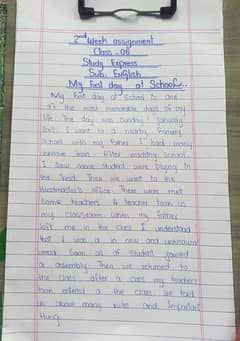 2nd Week assignment
Class - 06
Study Express
Sub: English
My First day at School..
My First day at School is one
of the most memorable days of my
life. The day was Sunday 1 January
I went to a nearby Primary
School with my father I had many
tears. After reaching School
I saw some student were playing in
the field. Then we went to the
Headmaster's office. There were met
Some teachers. A teacher took us
my classroom when my father
left me in the class I understand
that I was a in new and unknown
world Soon all of student joined
a assembly. Then we returned to
the class after a class my teachers
took entered a the class. He told
us about many rules and important
thing.